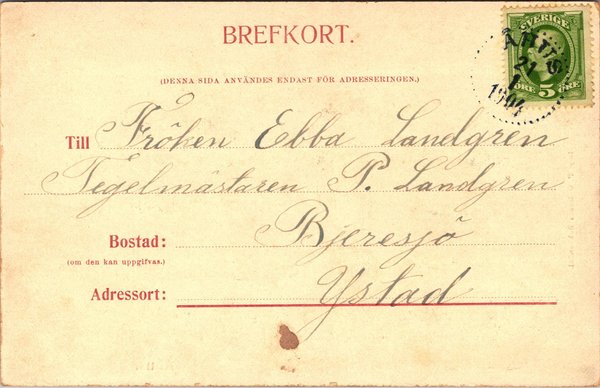 BREFKORT.
SVERIGE
ÅHUS
21
1
1904
5
ÖRE ÖRE
(DENNA SIDA ANVÄNDES ENDAST FÖR ADRESSERINGEN.)
Till Fröken Ebba Landgren
Tegelmästaren P. Landgren
Bostad: Bjeresjö
(om den kan uppgifvas.)
Adressort: Ystad